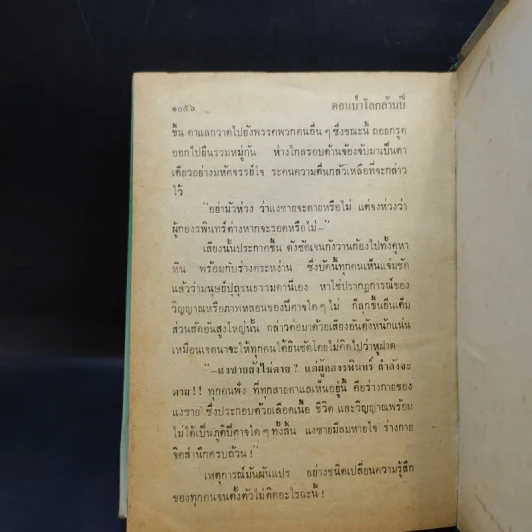 ๑๐๕๖
ตอนป่าโลกล้านปี
ขึ้น ตาแลกวาดไปยังพรรคพวกคนอื่น ๆ ซึ่งขณะนี้ ถอยกรูด
ออกไปยืนรวมหมู่กัน ห่างไกลรอบด้านจ้องจับมาเป็นตา
เดียวอย่างมหัศจรรย์ใจ ระคนความตื่นกลัวเหลือที่จะกล่าว
ไว้
"อย่ามัวห่วง ว่าแงซายจะตายหรือไม่ แต่จงห่วงว่า
ผู้กองรพินทร์ต่างหากจะรอดหรือไม่—"
เสียงนั้นประกาศขึ้น ดังชัดเจนกังวานก้องไปทั้งคูหา
หิน พร้อมกับร่างตระหง่าน ซึ่งบัดนี้ทุกคนเห็นแจ่มชัด
แล้วว่ามนุษย์ปุถุชนธรรมดานี่เอง หาใช่ปรากฏการณ์ของ
วิญญาณหรือภาพหลอนของปีศาจใด ๆ ไม่ ก็ลุกขึ้นยืนเต็ม
ส่วนสัดอันสูงใหญ่นั้น กล่าวต่อมาด้วยเสียงอันดังหนักแน่น
เหมือนเจตนาจะให้ทุกคนได้ยินชัดโดยไม่คิดไปว่าหูฝาด
"—แงซายยังไม่ตาย ? แต่ผู้กองรพินทร์ กำลังจะ
ตาย ! ! ทุกคนฟัง ที่ทุกสายตาแลเห็นอยู่นี้ คือร่างกายของ
แงซาย ซึ่งประกอบด้วยเลือดเนื้อ ชีวิต และวิญญาณพร้อม
ไม่ได้เป็นภูติปีศาจใด ๆ ทั้งสิ้น แงซายมีลมหายใจ ร่างกาย
จิตสำนึกครบถ้วน !"
เหตุการณ์มันผันแปร อย่างชนิดเปลี่ยนความรู้สึก
ของทุกคนจนตั้งตัวไม่ติดอะไรฉะนี้ !